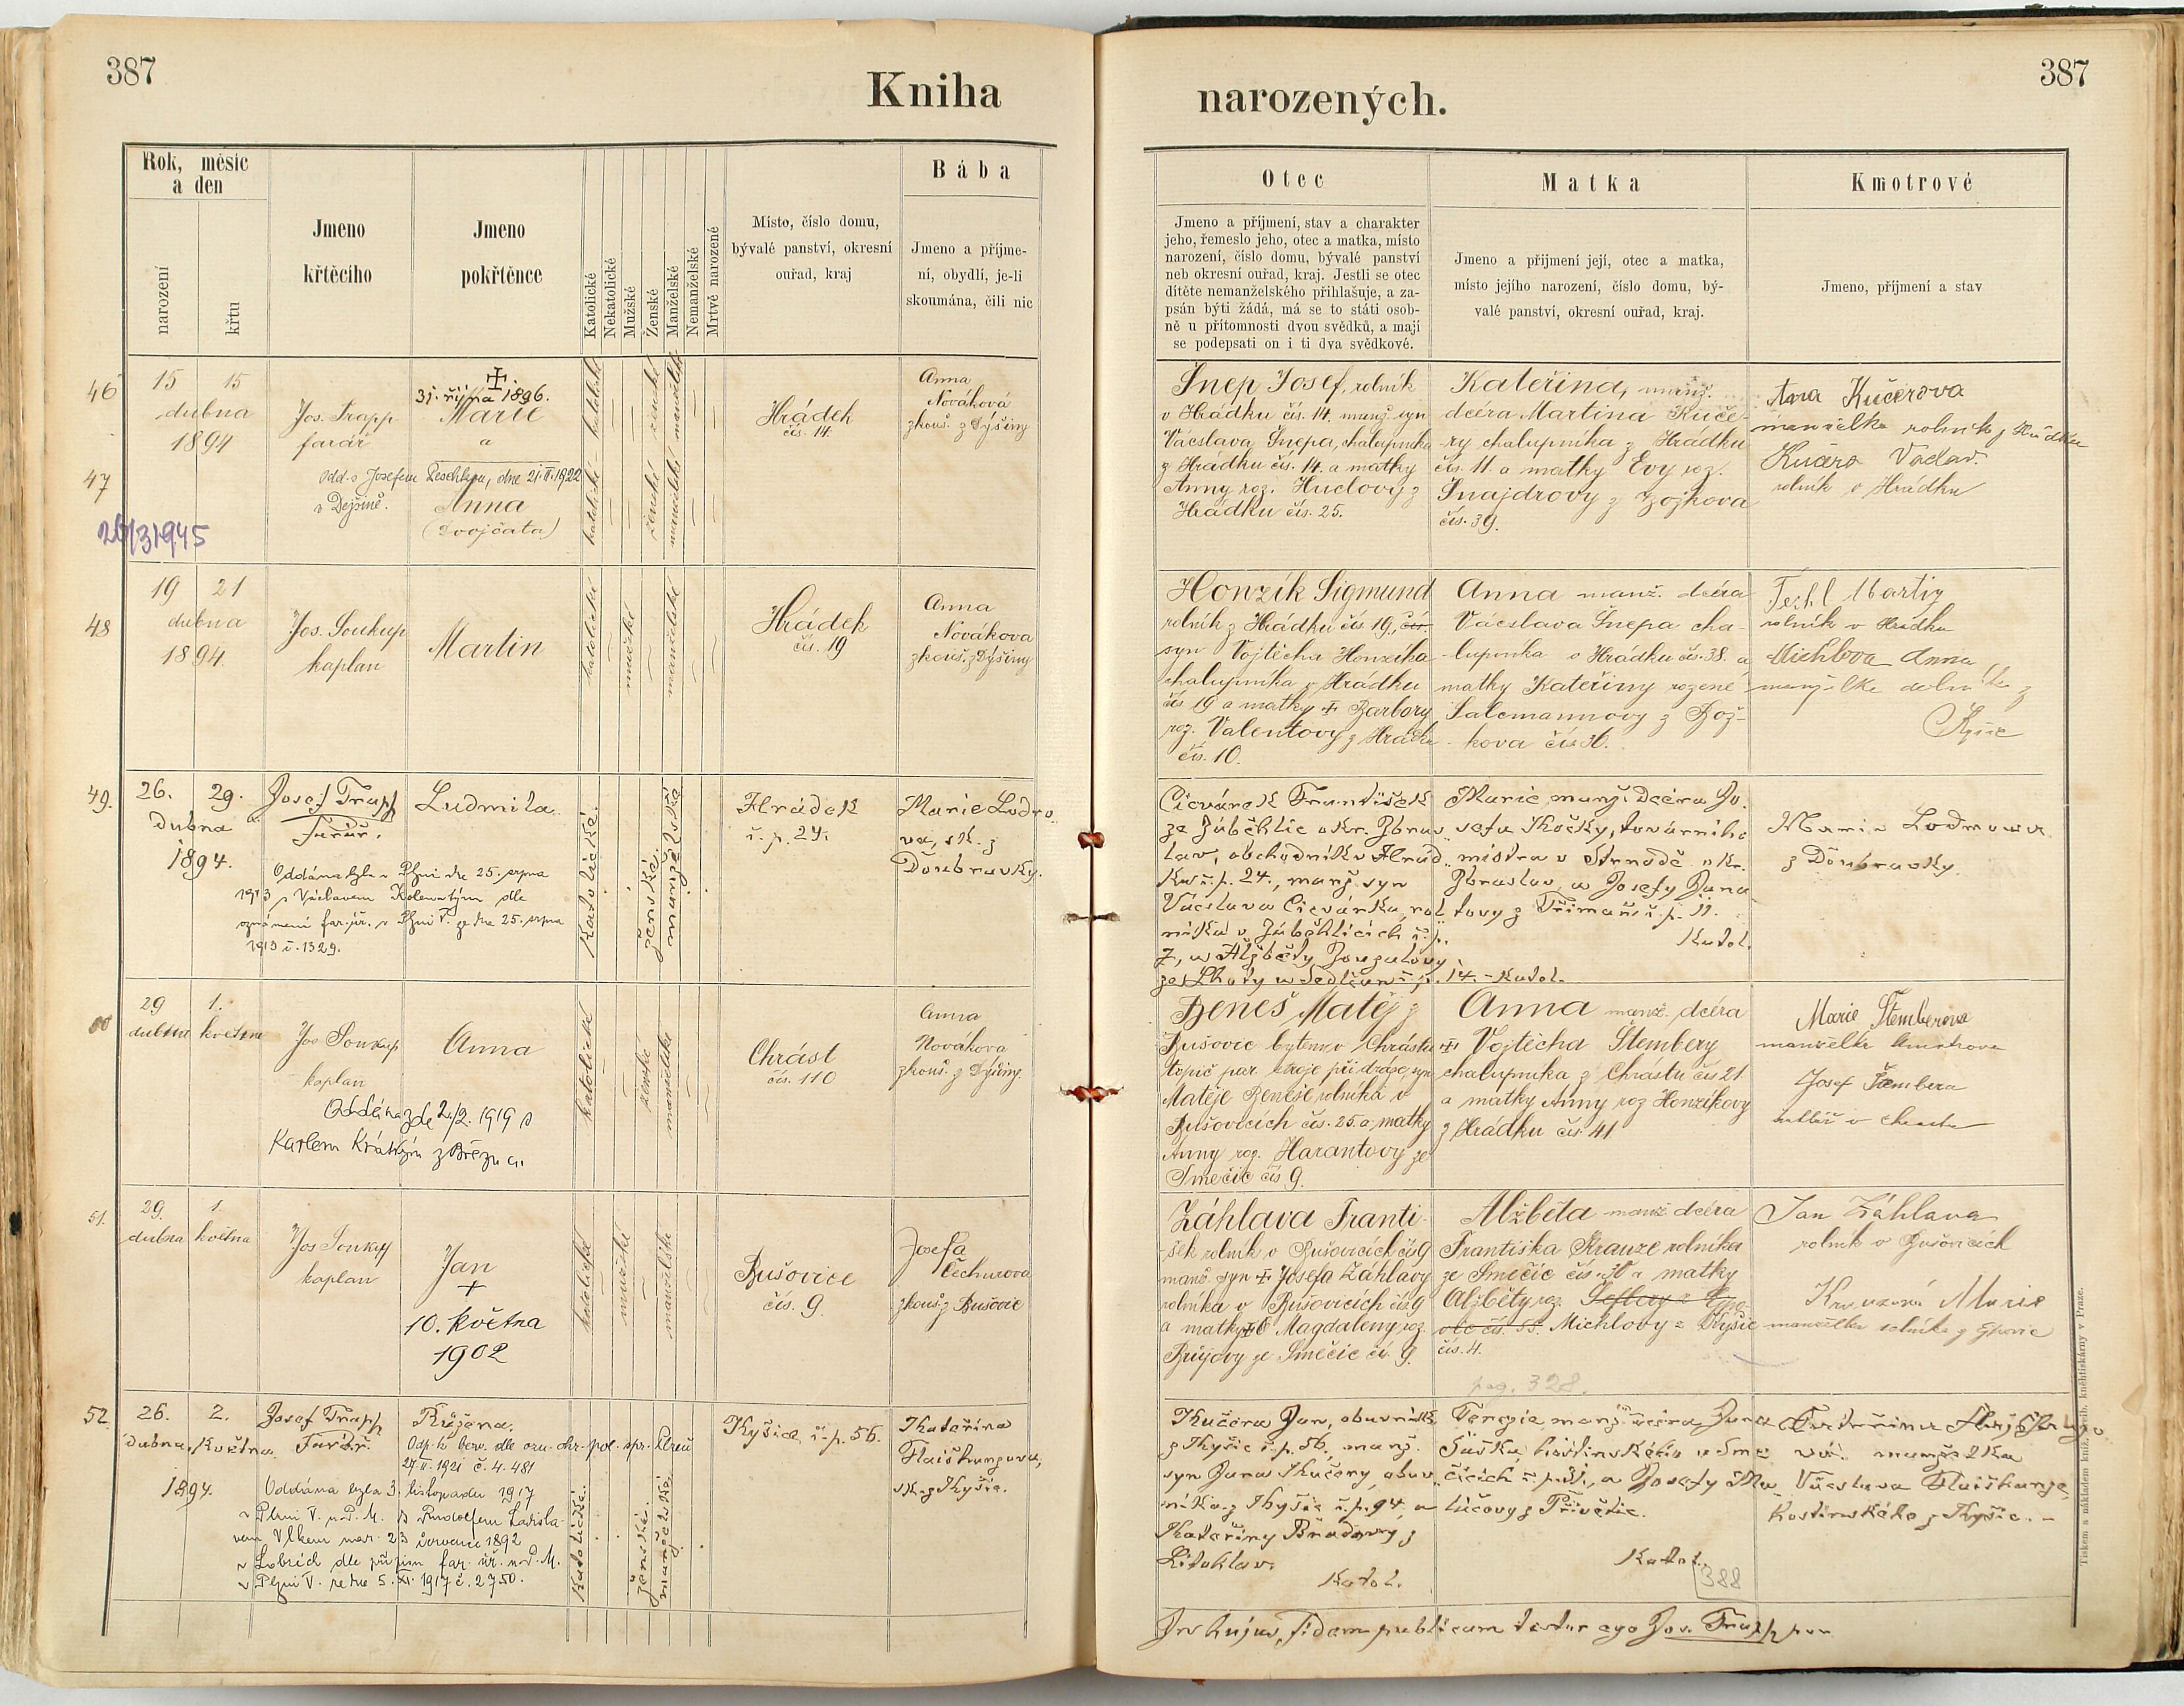 387
Kniha
Rok, měsíc
a den
narození
křtu
Jmeno
křtěcího
Jmeno
pokřtěnce
Katolické
Nekatolické
Mužské
Ženské
Manželské
Nemanželské
Mrtvě narozené
Místo, číslo domu,
bývalé panství, okresní
ouřad, kraj
Bába
Jmeno a příjme-
ní, obydlí, je-li
skoumána, čili nic
46
15 15
dubna
1894
Jos. Trapp
farář
31. října 1896.
Marie
a
katolické
ženské
manželské
Hrádek
čís. 14.
Anna
Nováková
zkouš. z Dýšiny
47
Odd. s Josefem Peschkem, dne 21.II.1922
v Dejšině.
Anna
(dvojčata)
katolické
ženské
manželské
26/3 1945
48
19 21
dubna
1894.
Jos. Soukup
kaplan
Martin
katolické
mužské
manželské
Hrádek
čís. 19
Anna
Novákova
zkouš. z Dýšiny
49.
26. 29.
Dubna
1894.
Josef Trapp
Farář.
Ludmila
Oddána byla v Plzni dne 25. srpna
1913 s Václavem Kolenatým dle
oznámení far. úř. v Plzni V. ze dne 25. srpna
1913 č. 1329.
Katolické.
ženské.
manželské
Hrádek
č. p. 24.
Marie Lodro
va, sk. z
Doubravky.
29 1.
dubna května
Jos Soukup
kaplan
Anna
Oddána zde 2./2. 1919 s
Karlem Krátkým z Března.
katolické
ženské
manželské
Chrást
čís. 110
Anna
Novákova
zkouš. z Dýšiny.
51.
29. 1.
dubna května
Jos Soukup
kaplan
Jan
+
10. května
1902
katolické
mužské
manželské
Bušovice
čís. 9.
Josefa
Čechurova
zkouš. z Bušovic
52
26. 2.
Dubna, Května
1894.
Josef Trapp
Farář.
Růžena.
27.II.1921 č. 4.481
Oddána byla 3. listopadu 1917
v Plzni V. n. P. M. s Rudolfem Ladisla-
vem Vlkem nar. 23 července 1892
v Plzni V. ze dne 5. XI. 1917 č. 2750.
Katolické.
ženské.
manželské.
Kyšice, č. p. 56.
Kateřina
Flaišhanzova,
sk. z Kyšic.
387
narozených.
Otec
Jmeno a příjmení, stav a charakter
jeho, řemeslo jeho, otec a matka, místo
narození, číslo domu, bývalé panství
neb okresní ouřad, kraj. Jestli se otec
dítěte nemanželského přihlašuje, a za-
psán býti žádá, má se to státi osob-
ně u přítomnosti dvou svědků, a mají
se podepsati on i ti dva svědkové.
Matka
Jmeno a přijmení její, otec a matka,
místo jejího narození, číslo domu, bý-
valé panství, okresní ouřad, kraj.
Kmotrové
Jmeno, příjmení a stav
Šnep Josef, rolník
v Hrádku čís. 14. manž. syn
Václava Šnepa, chalupníka
z Hrádku čís. 14. a matky
Anny roz. Hudlovy z
Hrádku čís. 25.
Kateřina, manž.
dcéra Martina Kuče-
ry chalupníka z Hrádku
čís. 11. a matky Evy roz.
Šnajdrovy z Božkova
čís. 39.
Anna Kučerova
manželka rolníka z Hrádku
Kučera Vaclav.
rolník v Hrádku
Honzík Sigmund
rolník z Hrádku čís 19, čís.
syn Vojtěcha Honzíka
chalupníka z Hrádku
čís 19 a matky Barbory
roz. Valentovy z Hrádku
čís. 10.
Anna manž. dcéra
Václava Šnepa cha-
lupníka v Hrádku čís. 38. a
matky Kateřiny rozené
Salcmannovy z Bož-
kova čís 36.
Martin
rolník v Hrádku
Michlova Anna
Cicvárek František
ze Záběhlic okr. Zbras
lav, obchodník v Hrád
ku č. p. 24., manž. syn
Václava Cicvárka, rol
níka v Záběhlicích č. p.
7, a Alžběty Zouzalovy
ze Lhoty u Sedlčan č. p. 14. - Katol.
Marie manž. dcéra Jo.
sefa Kočky, továrního
mistra v Strnadě okr.
Zbraslav, a Josefy Duna
tovy z Třímaň č. p. 11.
Katol.
Marie Lodrowa
z Doubravky.
Beneš Matěj z
Bušovic bytem v Chrástu
topič par. stroje při dráze, syn
Matěje Beneše rolníka v
Bušovicích čís. 25. a matky
Anny roz. Harantovy ze
Smečic čís 9.
Anna manž. dcéra
Vojtěcha Štembery
chalupníka z Chrástu čís 21
a matky Anny roz Honzíkovy
z Hrádku čís 41
Marie Štemberova
manželka
Josef Štembera
Záhlava Franti-
šek rolník v Bušovicích čís 9
manž. syn Josefa Záhlavy
rolníka v Bušovicích čís 9
a matky Magdaleny roz.
ze Smečic čís. 9.
Alžběta manž dcéra
Františka Krauze rolníka
ze Smečic čís. 30 a matky
Alžběty roz.
Michlovy z Kyšic
čís. 4.
pag. 328.
Jan Záhlava
rolník v Bušovicích
Krauzová Marie
manželka rolníka z Ejpovic
Kučera Jan, obuvník
z Kyšic č. p. 56, manž.
syn Jana Kučery, obuv
níka z Kyšic č. p. 94, a
Kateřiny Bradovy z
Litohlav.
Katol.
Terezie manž. dcéra Jana
Šaška, hostinského v Sme
čicích č. p. 31, a Josefy
Katol.
388
Kateřina
manželka
Václava Flaišhanze,
hostinského z Kyšic. -
In hujus, fidem publicam testor ego Jos. Trapp
Tiskem a nákladem kníž. arcib. knihtiskárny v Praze.